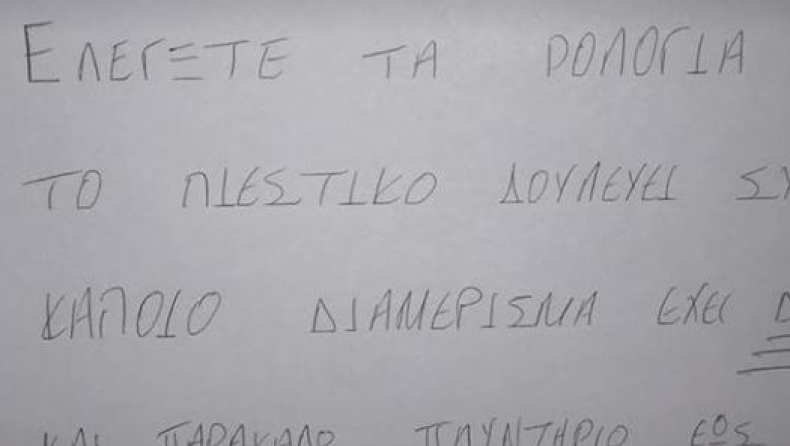 ΕΛΕΓΞΤΕ ΤΑ ΡΟΛΟΓΙΑ
ΤΟ ΠΙΕΣΤΙΚΟ ΔΟΥΛΕΥΕΙ
ΚΑΠΟΙΟ ΔΙΑΜΕΡΙΣΜΑ ΕΧΕΙ
ΚΑΙ ΠΑΡΑΚΑΛΩ ΠΛΥΝΤΗΡΙΟ